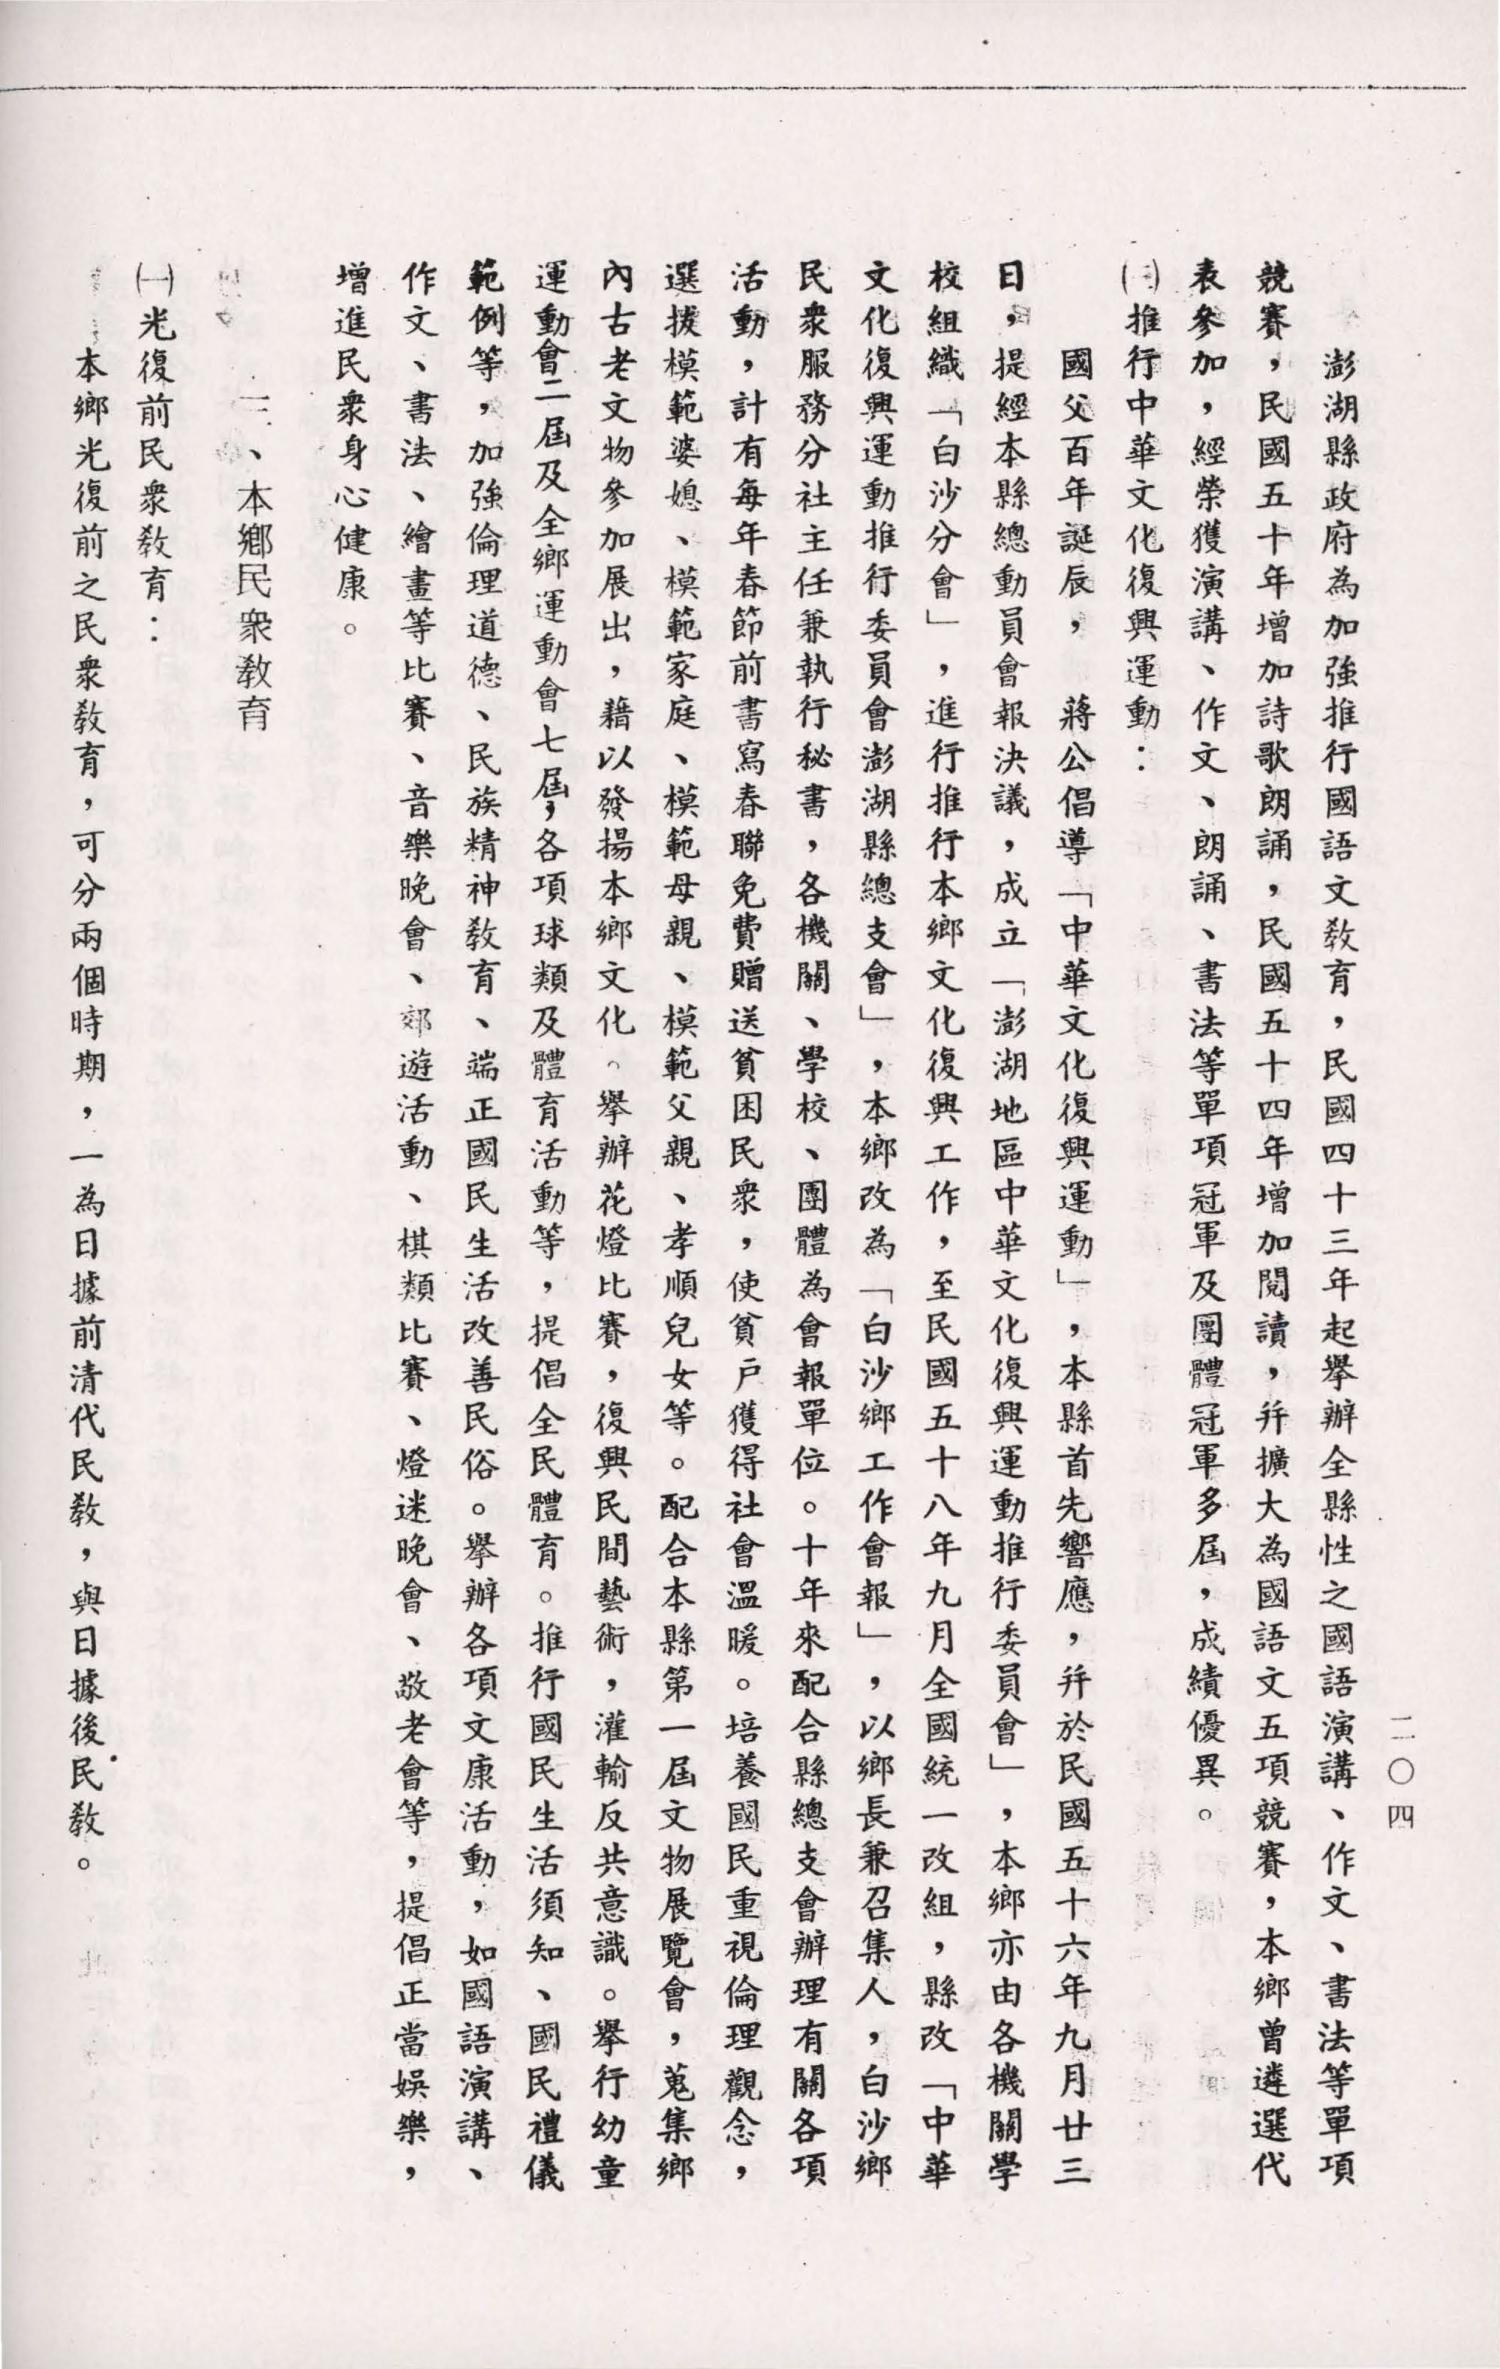 二〇四
澎湖縣政府為加強推行國語文教育，民國四十三年起舉辦全縣性之國語演講、作文、書法等單項
競賽，民國五十年增加詩歌朗誦，民國五十四年增加閱讀，并擴大為國語文五項競賽，本鄉曾遴選代
表參加，經榮獲演講、作文、朗誦、書法等單項冠軍及團體冠軍多屆，成績優異。
推行中華文化復興運動：
國父百年誕辰，　蔣公倡導「中華文化復興運動」，本縣首先響應，并於民國五十六年九月廿三
日，提經本縣總動員會報決議，成立「澎湖地區中華文化復興運動推行委員會」，本鄉亦由各機關學
校組織「白沙分會」，進行推行本鄉文化復興工作，至民國五十八年九月全國統一改組，縣改「中華
文化復興運動推行委員會澎湖縣總支會」，本鄉改為「白沙鄉工作會報」，以鄉長兼召集人，白沙鄉
民眾服務分社主任兼執行秘書，各機關、學校、團體為會報單位。十年來配合縣總支會辦理有關各項
活動，計有每年春節前書寫春聯免費贈送貧困民衆，使貧戶獲得社會溫暖。培養國民重視倫理觀念，
選拔模範婆媳、模範家庭、模範母親、模範父親、孝順兒女等。配合本縣第一屆文物展覽會，蒐集鄉
內古老文物參加展出，藉以發揚本鄉文化。舉辦花燈比賽，復興民間藝術，灌輸反共意識。舉行幼童
運動會二屆及全鄉運動會七屆，各項球類及體育活動等，提倡全民體育。推行國民生活須知、國民禮儀
範例等，加強倫理道德、民族精神教育、端正國民生活改善民俗。舉辦各項文康活動，如國語演講、
作文、書法、繪畫等比賽、音樂晚會、郊遊活動、棋類比賽、燈迷晚會、敬老會等，提倡正當娛樂，
增進民衆身心健康。
、本鄉民衆教育
㈠光復前民衆教育：
本鄉光復前之民衆教育，可分兩個時期，一為日據前清代民教，與日據後民教。